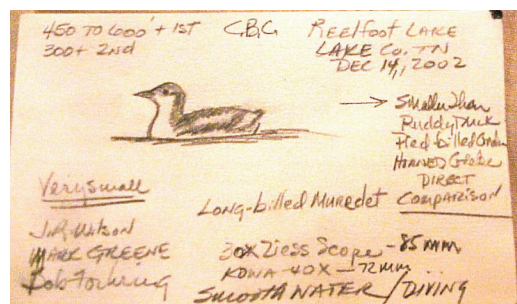 450 to 600' + 1st
300+ 2nd
C.B.C.
Reelfoot Lake
Lake Co. TN
Dec 14, 2002
Smaller than
Ruddy Duck
Pied-billed Grebe
Horned Grebe
Direct
Comparison
Very small
Long-billed Murrelet
J.R. Wilson
Mark Greene
Bob Foehring
20x Ziess Scope - 85 mm
Kowa 40x - 77mm
Smooth Water / Diving